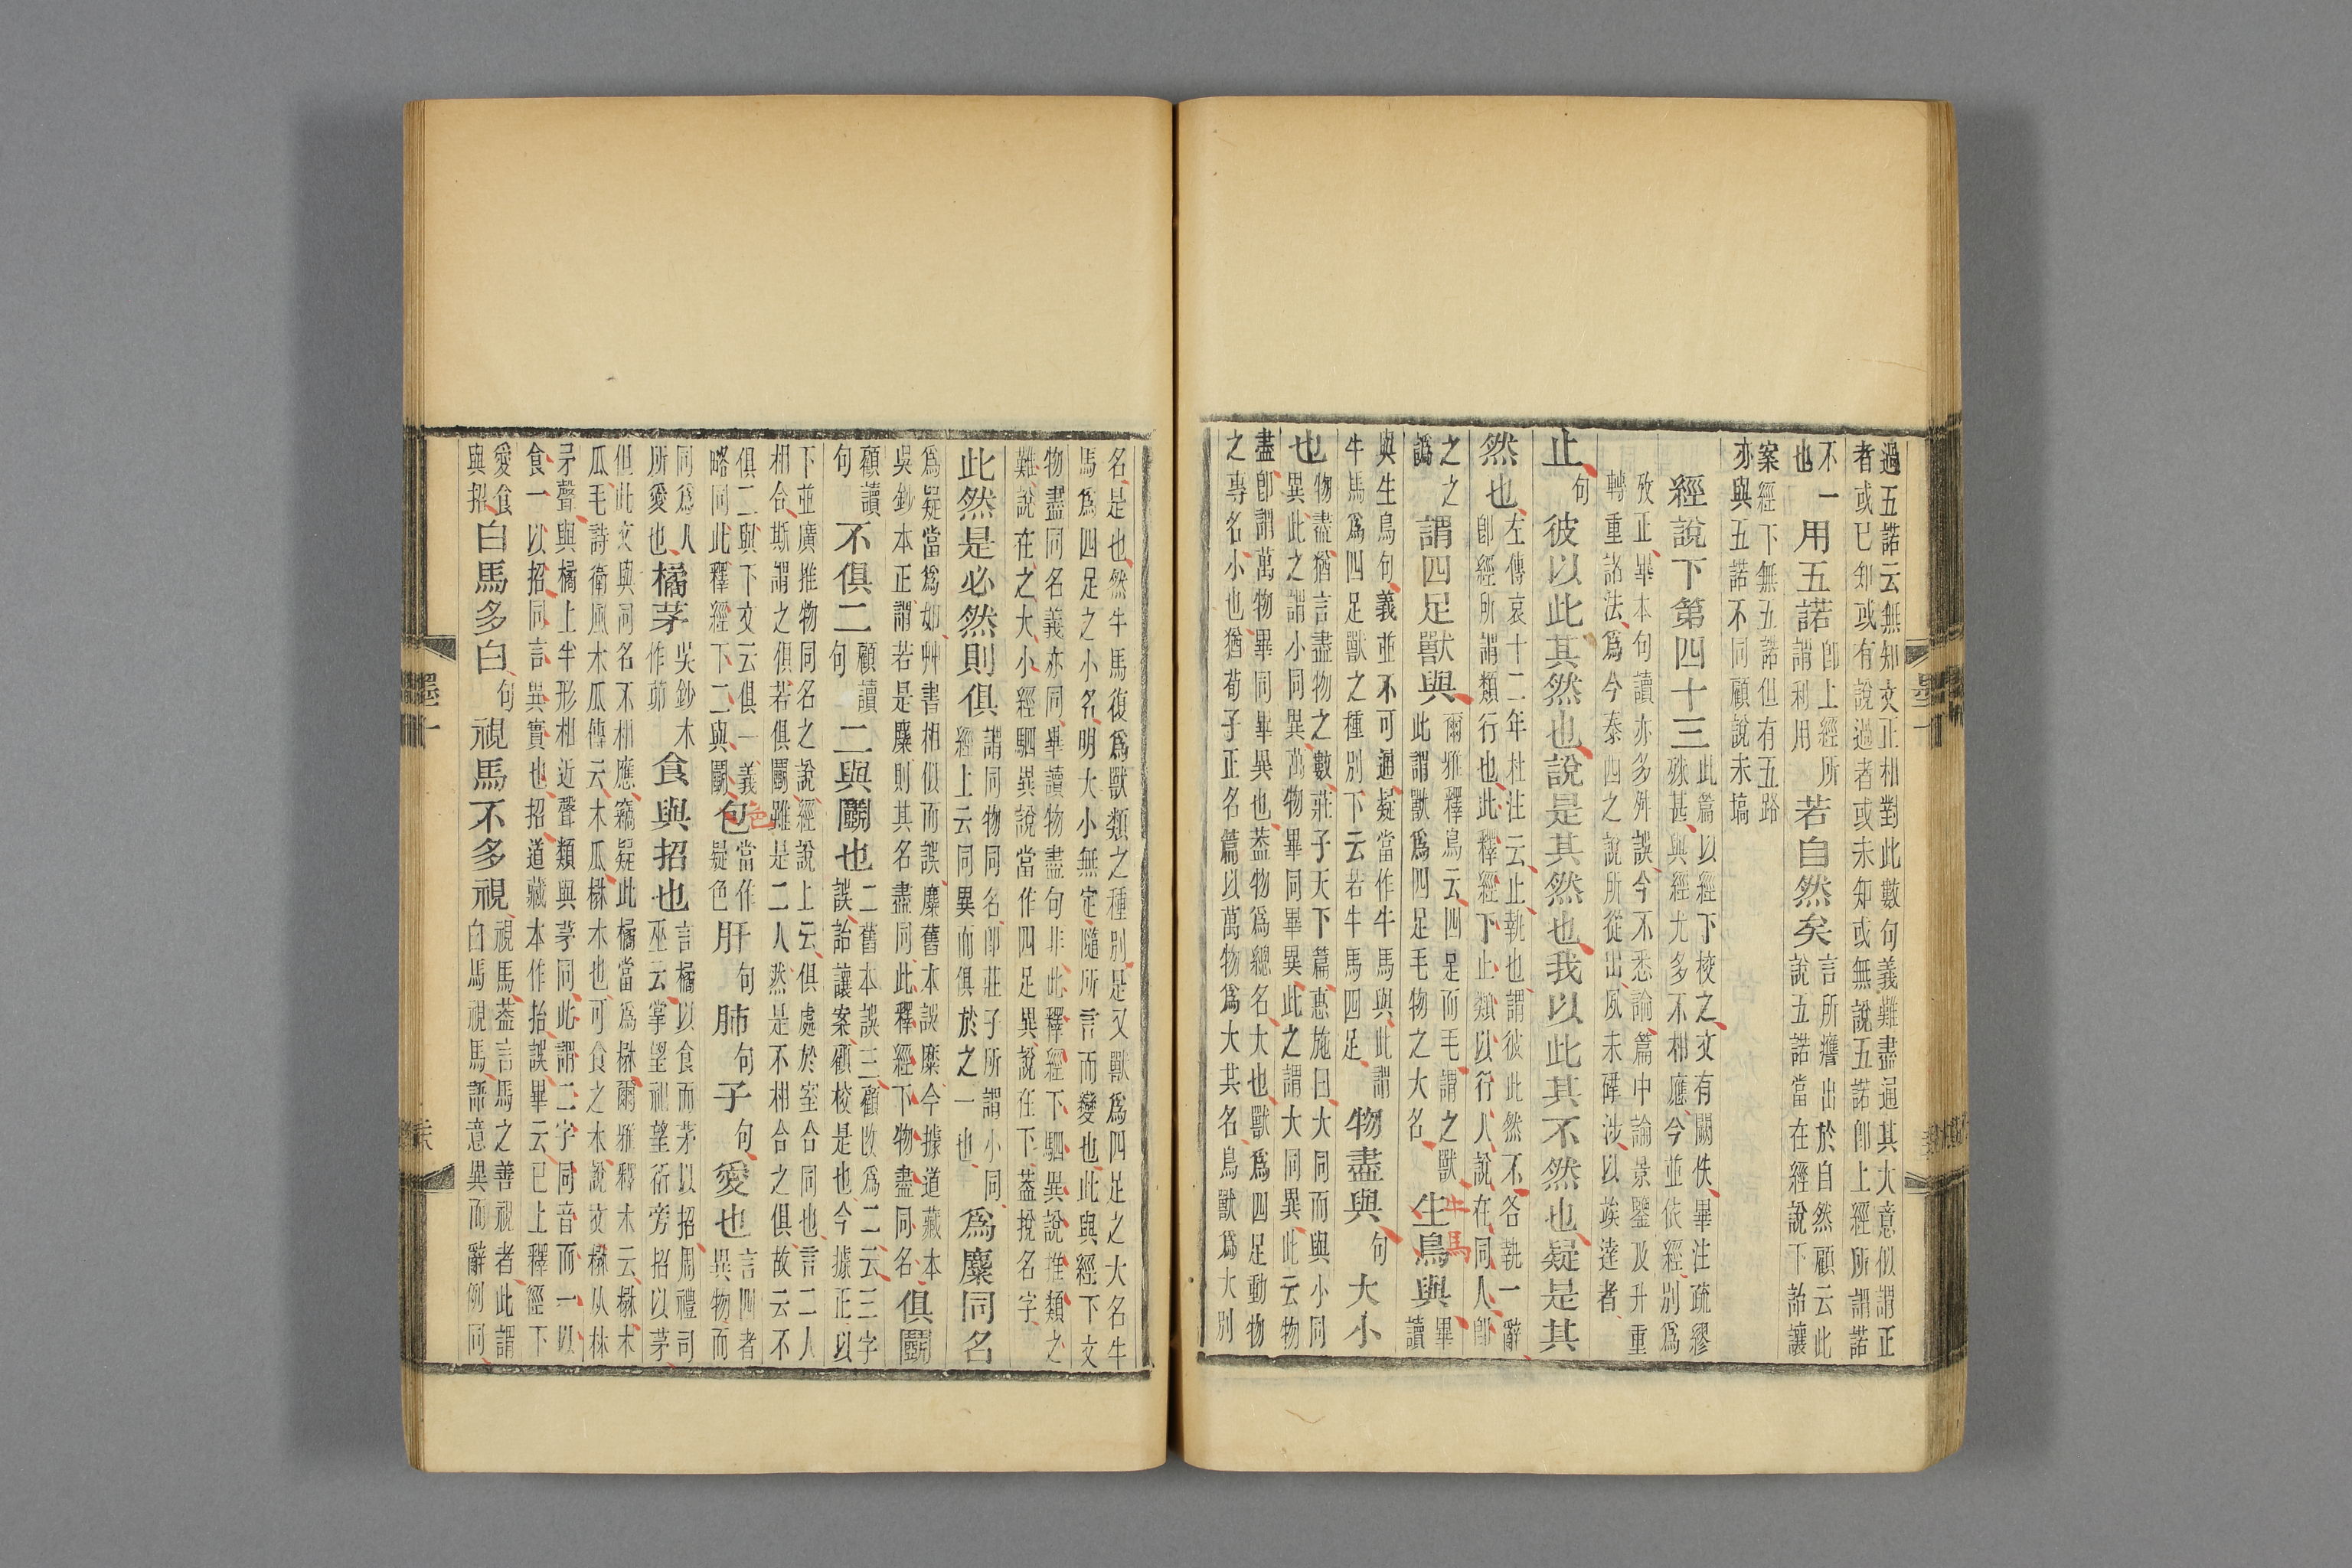 過五諾云無知文正相對此數句義難盡通其大意似謂正
者或已知或有說過者或未知或無說五諾卽上經所謂諾
不一也用五諾卽上經所謂利用若自然矣言所讐出於自然顧云此說五諾當在經說下詒讓
案經下無五諾但有五路
亦與五諾不同顧說未塙
經說下第四十三此篇以經下校之文有闕佚畢注疏繆殊甚與經尤多不相應今並依經別爲
攷正畢本句讀亦多舛誤今不悉論篇中論景鑒及升重
轉重諸法爲今泰西之說所從出夙未硏涉以竢達者
止句彼以此其然也說是其然也我以此其不然也疑是其
然也左傳哀十二年杜注云止執也謂彼此然不各執一辭卽經所謂類行也此釋經下止類以行人說在同人卽
之之譌謂四足獸與爾雅釋鳥云四足而毛謂之獸此謂獸爲四足毛物之大名生鳥與畢讀
牛馬
與生鳥句義並不可通疑當作牛馬與此謂牛馬爲四足獸之種別下云若牛馬四足物盡與句大小
也物盡猶言盡物之數莊子天下篇惠施曰大同而與小同異此之謂小同異萬物畢同畢異此之謂大同異此云物
盡卽謂萬物畢同畢異也蓋物爲總名大也獸爲四足動物
之專名小也猶荀子正名篇以萬物爲大共名鳥獸爲大別
名是也然牛馬復爲獸類之種別是又獸爲四足之大名牛
馬爲四足之小名明大小無定隨所言而變也此與經下文
物盡同名義亦同畢讀物盡句非此釋經下駟異說推類之
難說在之大小經駟異說當作四足異說在下蓋挩名字
此然是必然則俱謂同物同名卽莊子所謂小同經上云同異而俱於之一也爲麋同名
爲疑當爲如艸書相似而誤麋舊本誤糜今據道藏本
吳鈔本正謂若是麋則其名盡同此釋經下物盡同名俱鬭
顧讀句不俱二顧讀句二與鬭也二舊本誤三顧改爲二云三字誤詒讓案顧校是也今據正以
下並廣推物同名之說經說上云俱處於室合同也言二人
相合斯謂之俱若俱鬭雖是二人然是不相合之俱故云不
俱二與下文云俱一義略同此釋經下二與鬭包當作色疑肝句肺句子句愛也言四者異物而
色
同爲人所愛也橘茅吳鈔本作茆食與招也言橘以食而茅以招周禮司巫云掌望祀望衍旁招以茅
但此文與同名不相應竊疑此橘當爲楙爾雅釋木云楙木
瓜毛詩衞風木瓜傳云木瓜楙木也可食之木說文楙从林
矛聲與橘上半形相近聲類與茅同此謂二字同音而一以
食一以招同言異實也招道藏本作抬誤畢云已上釋經下
愛食與招白馬多白句視馬不多視視馬蓋言馬之善視者此謂白馬視馬語意異而辭例同
墨十